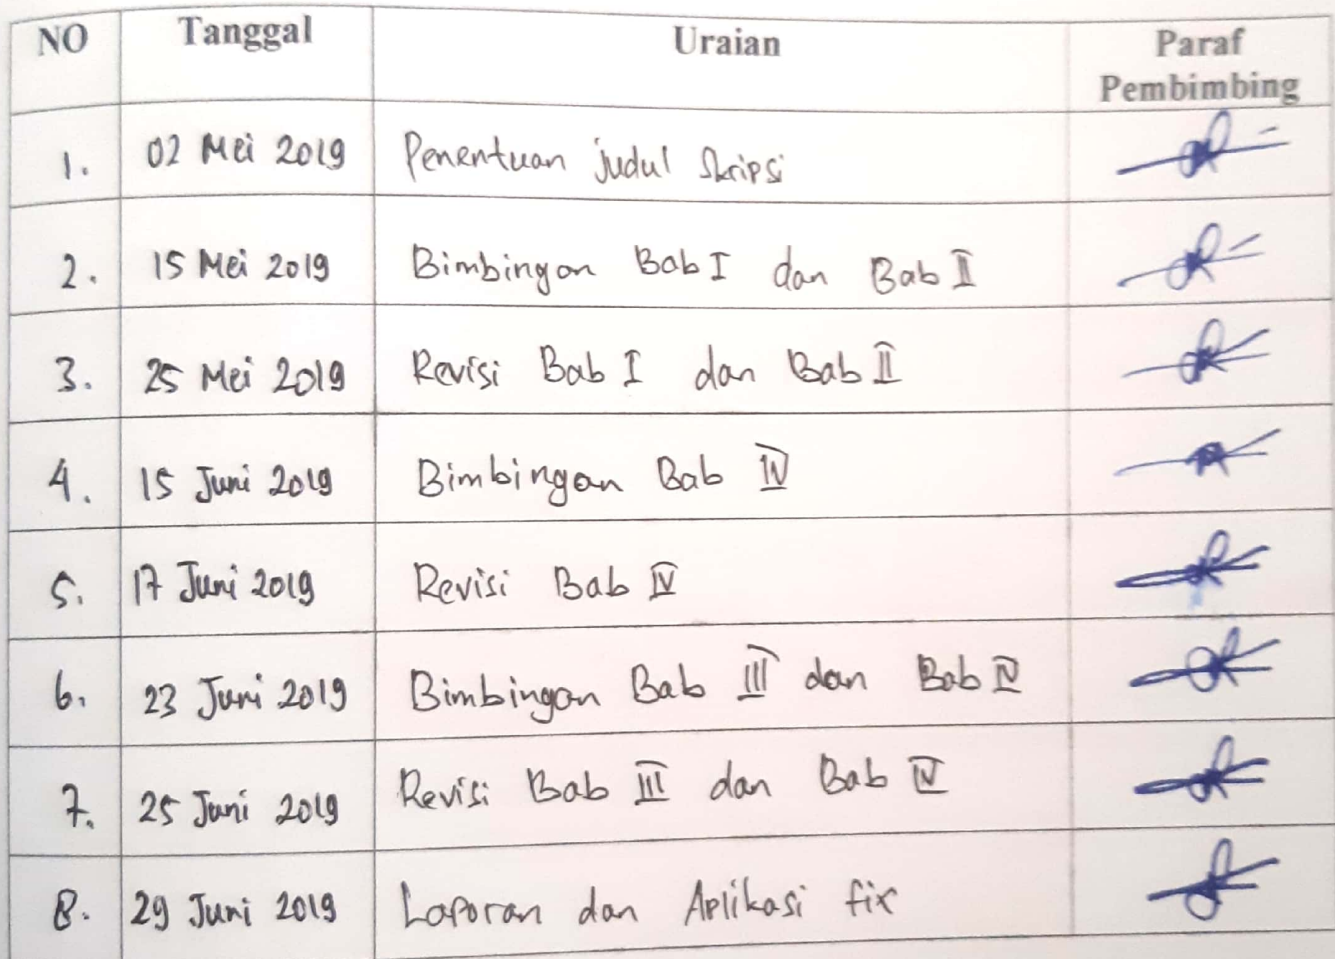 NO Tanggal Uraian Paraf
Pembimbing
1. 02 Mei 2019 Penentuan judul Skripsi
2. 15 Mei 2019 Bimbingan Bab I dan Bab II
3. 25 Mei 2019 Revisi Bab I dan Bab II
4. 15 Juni 2019 Bimbingan Bab IV
5. 17 Juni 2019 Revisi Bab IV
6. 23 Juni 2019 Bimbingan Bab III dan Bab IV
7. 25 Juni 2019 Revisi Bab III dan Bab IV
8. 29 Juni 2019 Laporan dan Aplikasi fix